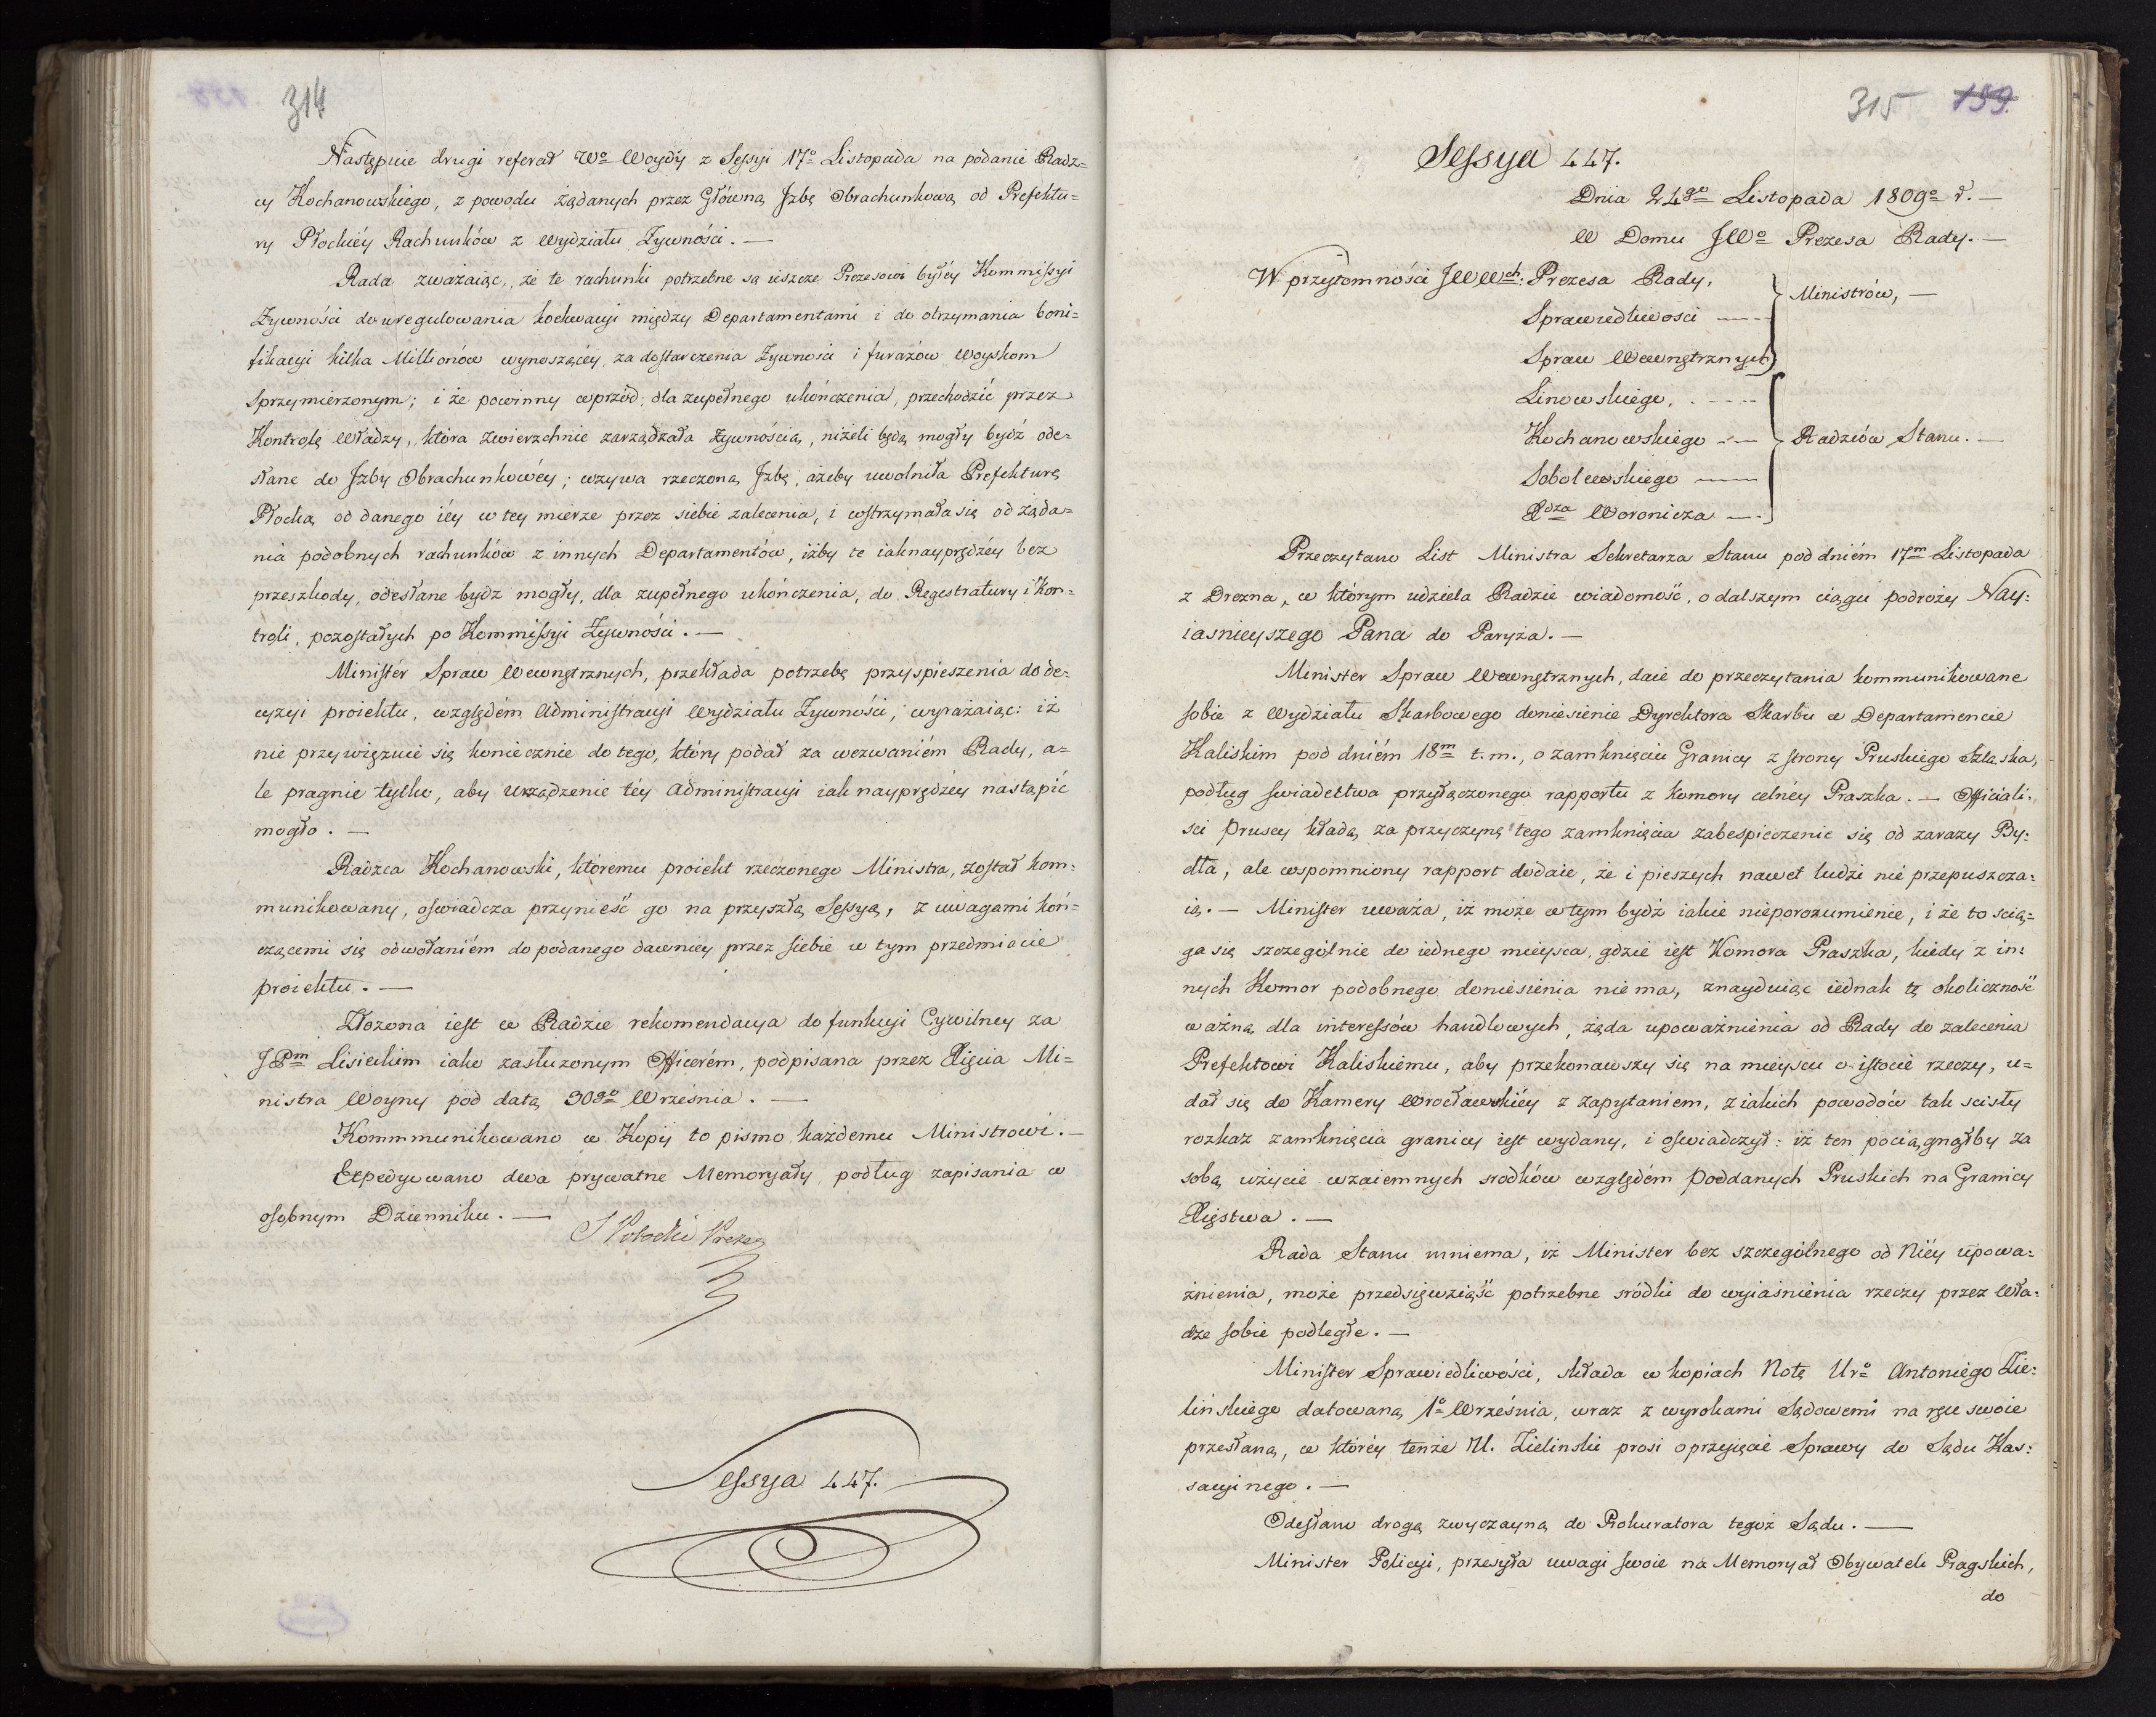 314
Następuie drugi referat Wo Woydy z Sessyi 17o Listopada na podanie Radz=
cy Kochanowskiego, z powodu żądanych przez Główną Izbę Obrachunkową od Prefektu=
ry Płockiéy Rachunków z Wydziału Żywności. —
Rada zważaiąc, że te rachunki potrzebne są ieszcze Prezesowi byłéy Kommissyi
Żywności do uregulowania kochwacyi między Departamentami i do otrzymania boni=
fikacyi kilka Millionów wynoszącéy, za dostarczenia Żywności i furażów Woyskom
Sprzymierzonym; i że powinny wprzód, dla zupełnego ukończenia, przechodzić przez
Kontrolę Władzy, która zwierzchnie zarządzała Żywnością, niżeli będą mogły bydź ode=
słane do Izby Obrachunkowéy; wzywa rzeczoną Izbę, ażeby uwolniła Prefekturę
Płocką od danego iéy w tey mierze przez siebie zalecenia, i wstrzymała się od żąda=
nia podobnych rachunków z innych Departamentów, iżby te iaknayprędzéy bez
przeszkody, odesłane bydz mogły, dla zupełnego ukończenia, do Regestratury i Kon=
troli, pozostałych po Kommissyi Żywności. —
Ministér Spraw Wewnętrznych, przekłada potrzebę przyspieszenia do de=
cyzyi proiektu, względém Administracyi Wydziału Żywności, wyrażaiąc: iż
nie przywięzuie się koniecznie do tego, który podał za wezwaniém Rady, a=
le pragnie tylko, aby Urządzenie téy Administracyi iak nayprędzéy nastąpić
mogło. —
Radzca Kochanowski, któremu proiekt rzeczonego Ministra, został kom=
munikowany, oświadcza przynieść go na przyszłą Sessyą, z uwagami koń=
czącemi się odwołaniém do podanego dawniey przez siebie w tym przedmiocie
proiektu. —
Złożona iest w Radzie rekomendacya do funkcyi Cywilney za
JPm Lisieckim iako zasłużonym Officerém, podpisana przez Xięcia Mi=
nistra Woyny pod datą 30go Września. —
Kommmunikowano w Kopij to pismo każdemu Ministrowi. —
Expedyowano dwa prywatne Memoryały podług zapisania w
osobnym Dzienniku. —
S Potocki Prezes
Sessya 447.
315 159.
Sessya 447.
Dnia 24go Listopada 1809o r. —
W Domu JWo Prezesa Rady. —
W przytomności JWWch: Prezesa Rady,
Sprawiedliwości —
Spraw Wewnętrznych
Ministrów, —
Linowskiego,
Kochanowskiego —
Sobolewskiego —
Xdza Woronicza —
Radzców Stanu. —
Przeczytano List Ministra Sekretarza Stanu pod dniém 17m Listopada
z Drezna, w którym udziela Radzie wiadomość, o dalszym ciągu podroży Nay=
iasnieyszego Pana do Paryża. —
Minister Spraw Wewnętrznych, daie do przeczytania kommunikowane
sobie z Wydziału Skarbowego doniesienie Dyrektora Skarbu w Departamencie
Kaliskim pod dniém 18m t. m., o zamknięciu Granicy z strony Pruskiego Szląska,
podług swiadectwa przyłączonego rapportu z komory celnéy Praszka. — Officiali=
sci Pruscy kładą, za przyczynę tego zamknięcia zabespieczenie się od zarazy By=
dła, ale wspomniony rapport dodaie, że i pieszych nawet ludzi nie przepuszcza=
ią. — Minister uważa, iż może w tym bydź iakie nieporozumienie, i że to scią=
ga się szczególnie do iednego mieysca, gdzie iest Komora Praszka, kiedy z in=
nych Komor podobnego doniesienia nie ma, znayduiąc iednak tę okoliczność
ważną dla interessów handlowych, żąda upoważnienia od Rady do zalecenia
Prefektowi Kaliskiemu, aby przekonawszy się na mieyscu o istocie rzeczy, u=
dał się do Kamery Wrocławskiéy z zapytaniem, z iakich powodów tak scisły
rozkaz zamknięcia granicy iest wydany, i oświadczył: iż ten pociągnąłby za
sobą użycie wzaiemnych srodków względém Poddanych Pruskich na Granicy
Xięstwa. —
Rada Stanu mniema, iż Minister bez szczególnego od Niéy upowa=
żnienia, może przedsięwziąść potrzebne sródki do wyiaśnienia rzeczy przez Wła=
dze sobie podległe. —
Minister Sprawiedliwości, składa w kopiach Notę Uro Antoniego Zie=
lińskiego datowaną 1o Września, wraz z wyrokami Sądowemi na ręce swoie
przesłaną, w któréy tenże U. Zielinski prosi o przyięcie Sprawy do Sądu Kas=
sacyinego. —
Odesłano drogą zwyczayną do Prokuratora tegoż Sądu. —
Minister Policyi, przesyła uwagi swoie na Memoryał Obywateli Pragskich,
do